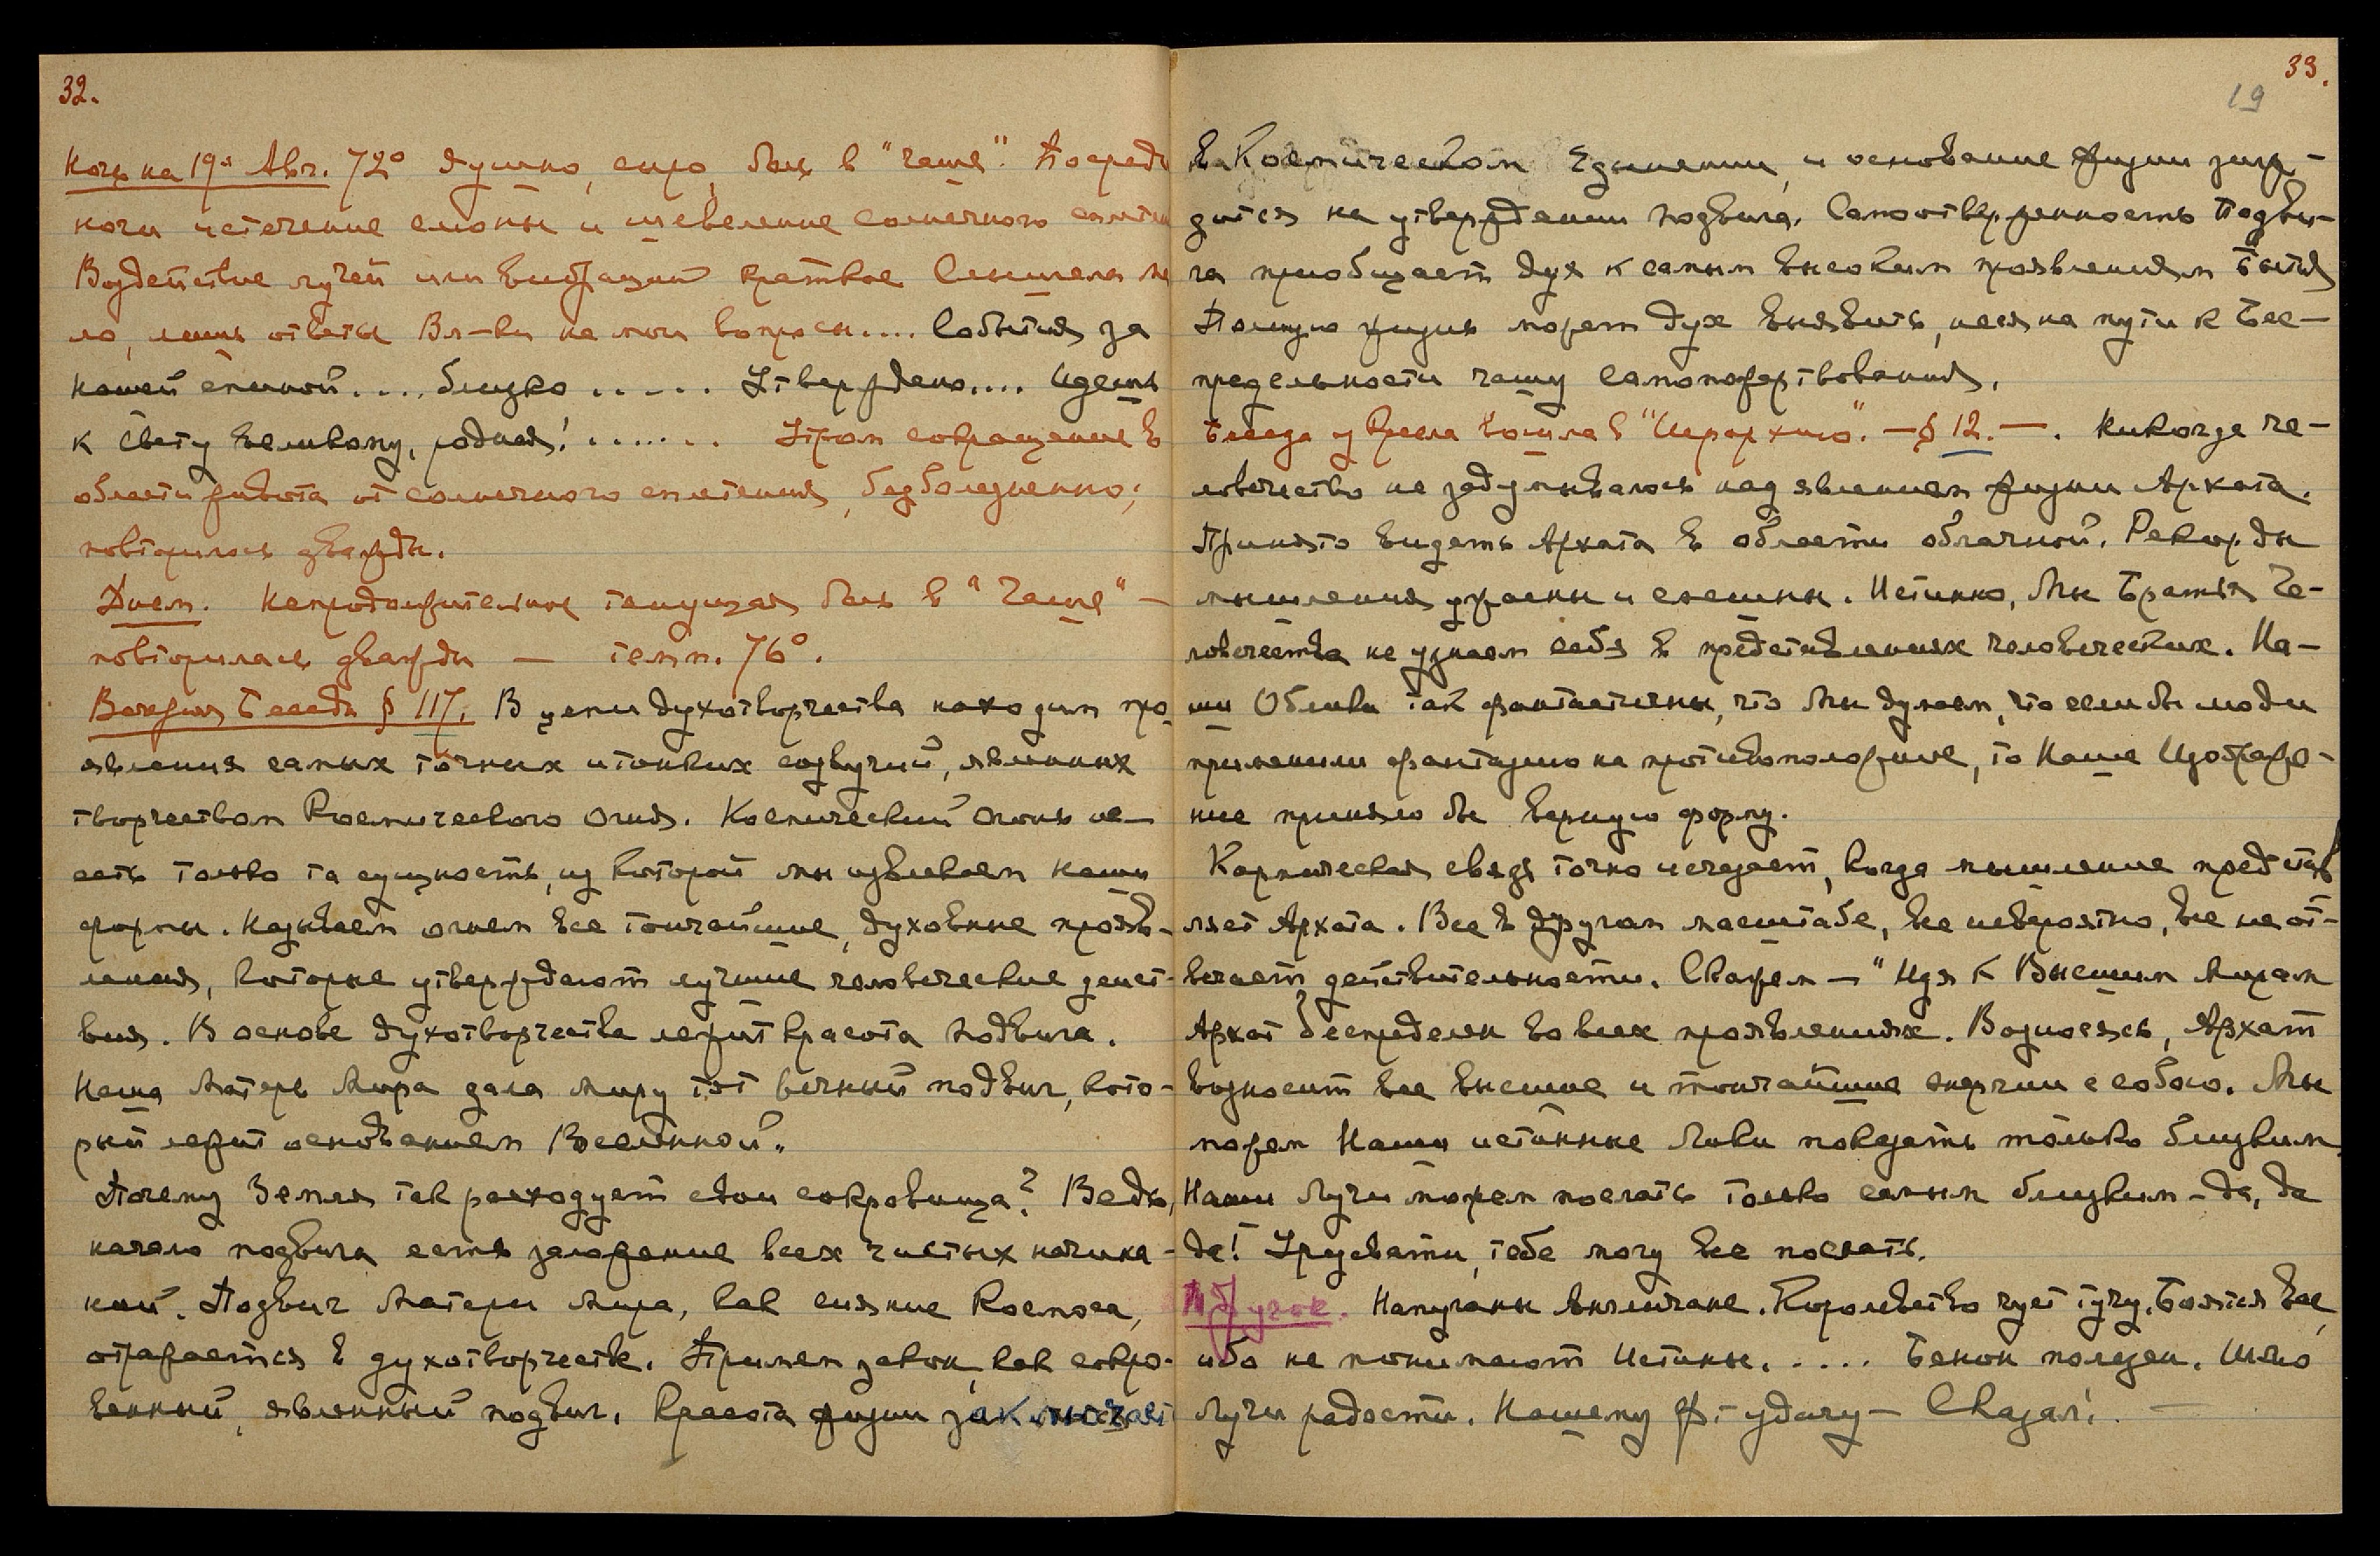 32.
Ночь на 19ое Авг. 72° душно, сыро, боль в "чаше". Посреди
ночи истечение слюны и шевеление солнечного сплетен
Воздействие лучей или вибраций краткое Слышала ма
ло, лишь ответы Вл-ки на мои вопросы.... События за
нашей спиной.... близко ..... Утверждено.... Идешь
к Свету великому, родная! ....... Утром сокращение в
области живота от солнечного сплетения, безболезненно;
повторилось дважды.
Днем. Непродолжительное тянущая боль в "Чаше" —
повторилась дважды — темп. 76°.
Вечерняя Беседа § 117. В цепи духотворчества находим про
явления самых точных и тонких созвучий, явленных
творчеством Космического Огня. Космический Огонь не
есть только та сущность, из которой мы извлекаем наши
формы. Называем огнем все тончайшие, духовные прояв-
ления, которые утверждают лучшие человеческие дейст-
вия. В основе духотворчества лежит красота подвига.
Наша Матерь Мира дала миру тот вечный подвиг, кото-
рый лежит основанием Вселенной.
Почему Земля так расходует свои сокровища? Ведь,
начало подвига есть заложение всех чистых начина-
ний. Подвиг Матери Мира, как сияние Космоса,
отражается в духотворчестве. Примем закон, как сокро-
венный, явленный подвиг. Красота жизни заключает
33.
19
в Космическом Единении, и основание жизни зиж-
дится на утверждении подвига. Самоотверженность Подви-
га приобщает дух к самым высоким проявлениям Бытия
Полную жизнь может дух выявить, неся на пути к Бес-
предельности чашу самопожертвования.
Беседа у Кресла вошла в "Иерархию". — § 12. —. Никогда че-
ловечество не задумывалось над явлением жизни Архата.
Принято видеть Архата в области облачной. Рекорды
мышления ужасны и смешны. Истинно, Мы Братья Че-
ловечества не узнаем себя в представлениях человеческих. На-
ши Облики так фантастичны, что Мы думаем, что если бы люди
применили фантазию на противоположное, то Наше Изображе-
ние приняло бы верную форму.
Кармическая связь точно исчезает, когда мышление представ
ляет Архата. Все в другом масштабе, все невероятно, все не от-
вечает действительности. Скажем — "Идя к Высшим Мирам
Архат беспределен во всех проявлениях. Возносясь, Архат
возносит все высшие и тончайшие энергии с собою. Мы
можем Наши истинные Лики показать только близким.
Наши Лучи можем послать только самым близким — да, да
да! Урусвати, тебе могу все послать.
Напуганы Англичане. Королевство чует тучу. Боятся все,
ибо не понимают Истины. .... Бенон полезен. Шлю
Лучи радости. Нашему Ф. — удачу — Сказал! . —